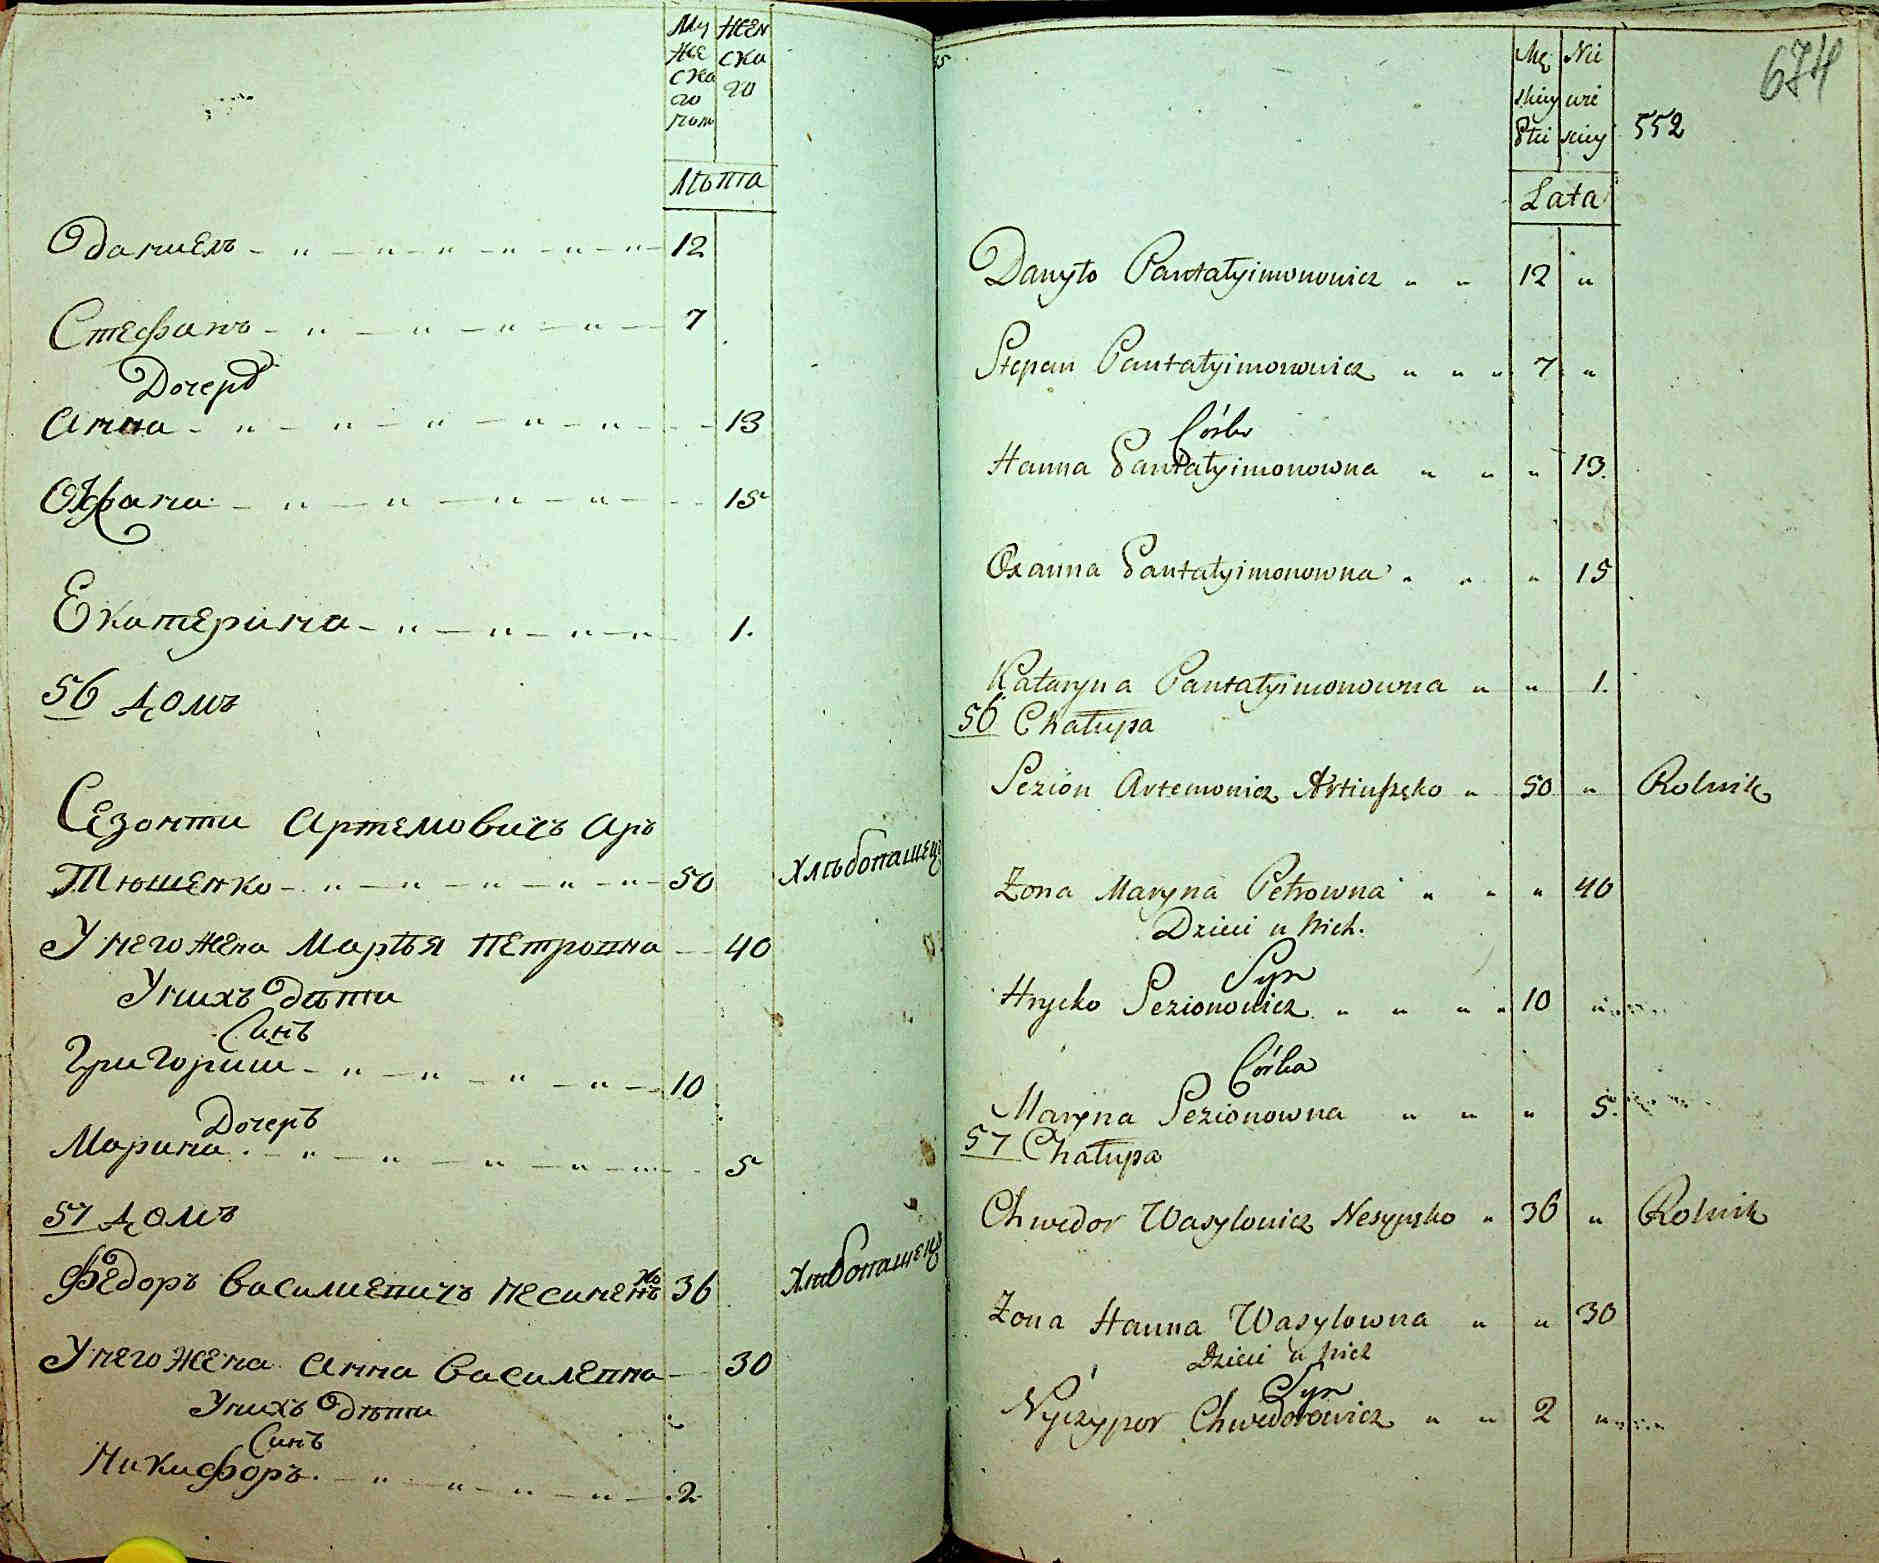 Му жЕ ска го пол
ЖЕН ска го
Лѣта
Даниелъ 12
Стефанъ 7
Дочерѣ
Анна 13
15
Екатерина 1.
56 домъ
Сезонти Артемовичъ Ар
Тюшенко 50 Хлѣбопашецъ
У него жена Марья Петровна 40
У нихъ дѣти
Синъ
Григории 10
Дочерѣ
Марина 5
57 домъ
Федоръ Василиевичъ 36 Хлѣбопашецъ
У него жена Анна Василевна 30
У нихъ дѣти
Синъ
Никифоръ 2
674
Mę skiey Płci
Nie wie sciey
552
Lata
Danyło Pantałyimonowicz " " 12 "
Stepan Pantałyimonowicz " " " 7 "
Córka
Hanna Pantałyimonowna " " " 13.
Oxanna Pantałyimonowna " " " 15
Kataryna Pantałyimonowna " " 1.
56 Chałupa
Sezion Artemowicz 50 " Rolnik
Żona Maryna Petrowna " " " 40
Dzieci u Nich.
Syn
Hrycko Sezionowicz " " " " 10 "
Córka
Maryna Sezionowna " " " 5.
57 Chałupa
Chwedor Wasylowicz 36 " Rolnik
Żona Hanna Wasylowna " " 30
Dzieci u Nich
Syn
Nyczypor Chwedorowicz " " 2 "